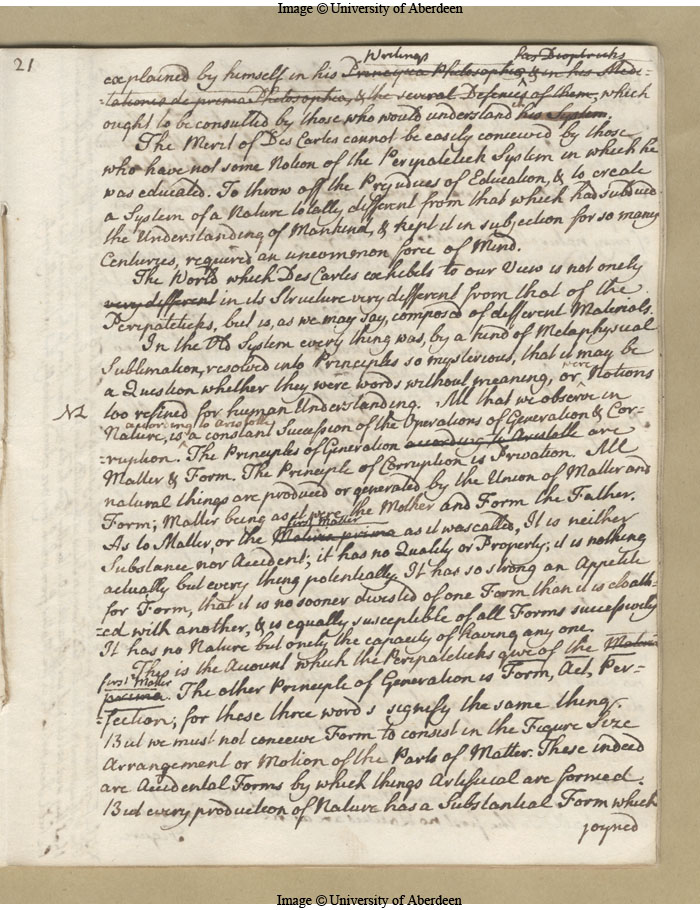 Image © University of Aberdeen
21
Writings his Dioptricks
explained by himself in his Principia Philosophiæ & in his Medi-
tationis de prima Philosophia, & the several Defences of them, which
ought to be consulted by those who would understand his System.
The Merit of Des Cartes cannot be easily conceived by those
who have not some Notion of the Peripatetick System in which he
was educated. To throw off the Prejudices of Education, & to create
a System of a Nature totally different from that which had subdued
the Understanding of Mankind, & kept it in subjection for so many
Centuryes, required an uncommon force of Mind.
The World which Des Cartes exhibets to our View is not onely
very different in its Structure very different from that of the
Peripateticks, but is, as we may say, composed of different Materials.
In the Old System every thing was, by a kind of Metaphysical
Sublimation, resolved into Principles so mysterious, that it may be
a Question whether they were words without meaning, or were Notions
too refined for human Understanding. All that we observe in
according to Aristotle
Nature, is a constant Succession of the Operations of Generation & Cor-
ruption. The Principles of Generation according to Aristotle are
Matter & Form. The Principle of Corruption is Privation. All
natural things are produced or generated by the Union of Matter and
Form; Matter being as it were the Mother and Form the Father.
first Matter
As to Matter, or the Materia prima as it was called, It is neither
Substance nor Accident; it has no Quality or Property; it is nothing
actually but every thing potentially. It has so strong an Appetite
for Form, that it is no sooner divested of one Form than it is cloath-
-ed with another, & is equally susceptible of all Forms successively
It has no Nature but onely the capacity of having any one.
This is the Account which the Peripateticks give of the Materia
first Matter
prima. The other Principle of Generation is Form, Act, Per-
-fection; for these three words signify the same thing.
But we must not conceive Form to consist in the Figure Size
Arrangement or Motion of the Parts of Matter. These indeed
are Accidental Forms by which things Artificial are formed.
But every production of Nature has a Substantial Form which
joyned
Image © University of Aberdeen